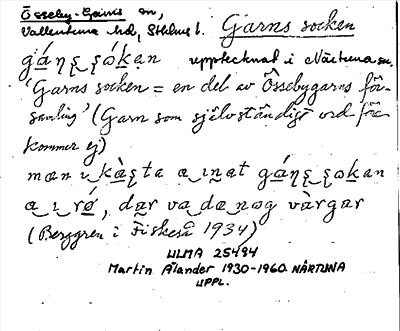 Össeby-Garns sn,
Vallentuna hd, Sthlms l. Garns socken
gá̱ṇṣ ṣó̱ken upptecknat i Närtuna sn.
'Garns socken = en del av Össebygarns för-
samling' (Garn som självständigt ord före-
kommer ej)
mæn i kà̱ṣta a i̱nat gá̱ṇṣ ṣo̱kan
a i ró̱, dær va dæ nog vargar
(Berggren i Fiskeså 1934)
ULMA 25494
Martin Ålander 1930-1960 NÄRTUNA
UPPL.